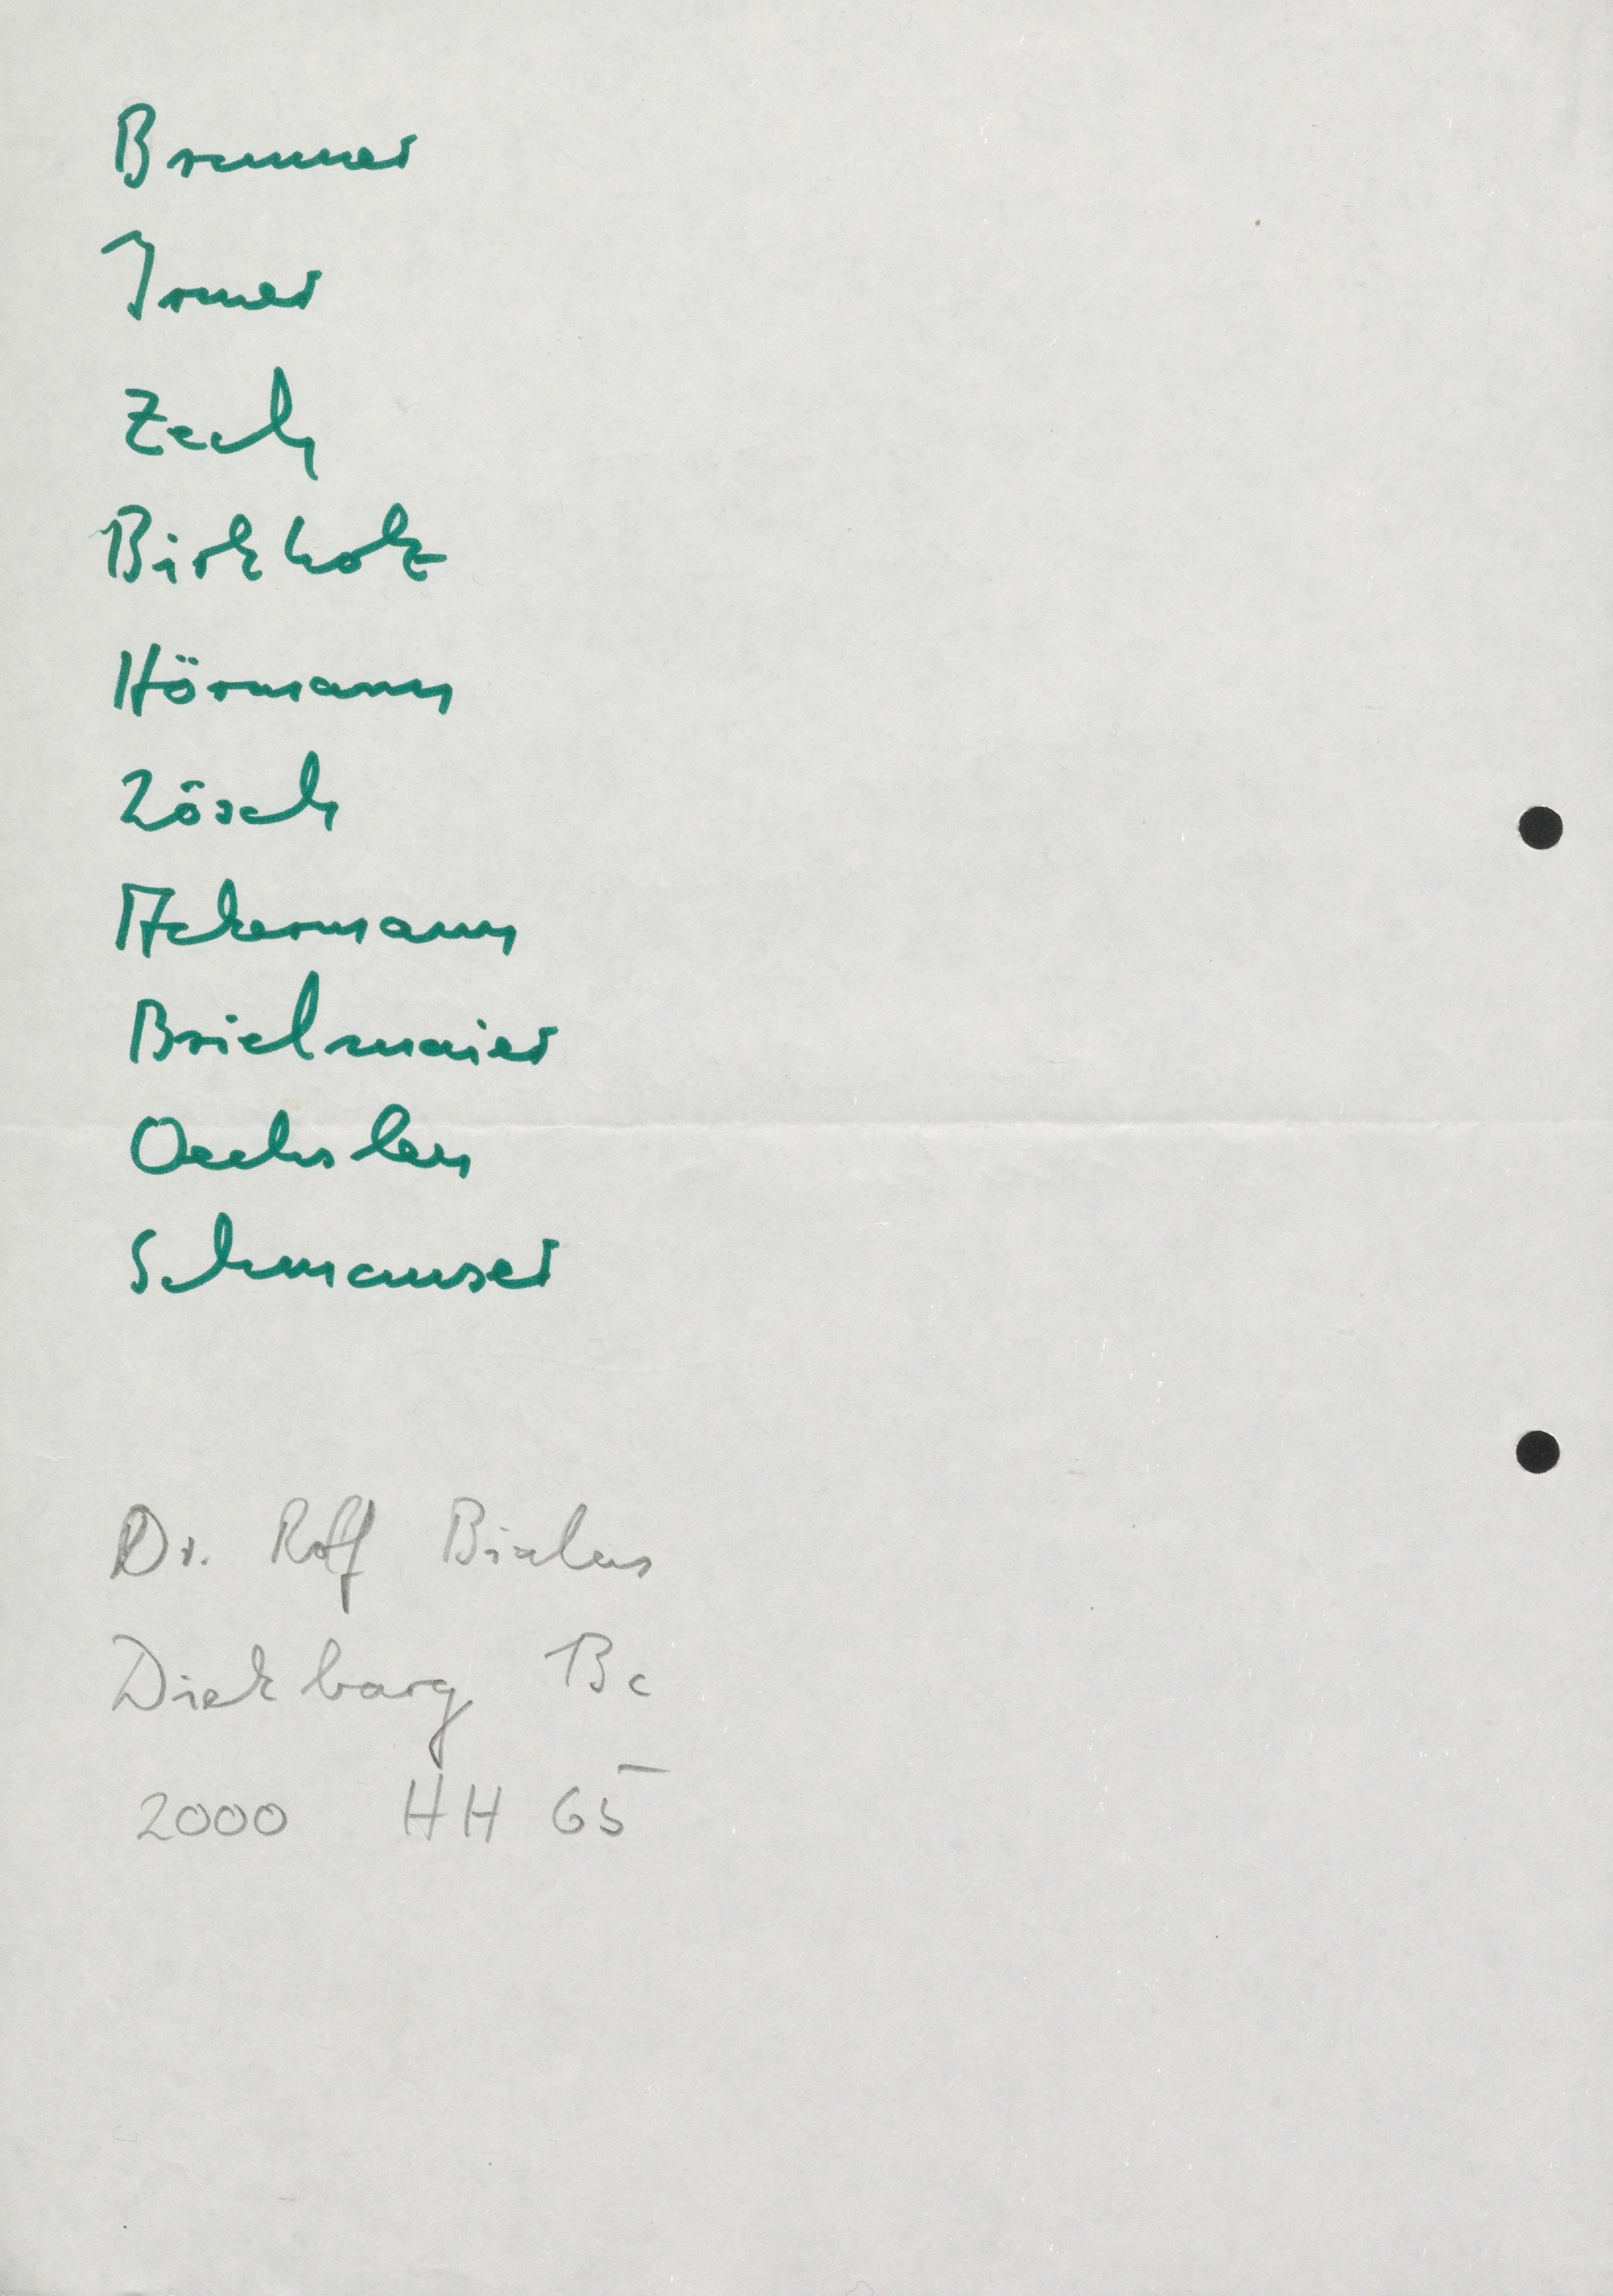 Brunner
Irmer
Zech
Birkholz
Hörmann
Lösch
Ackermann
Brielmaier
Oechslen
Schmauser
Dr. Rolf Bialas
Diekbarg 13c
2000 HH 65